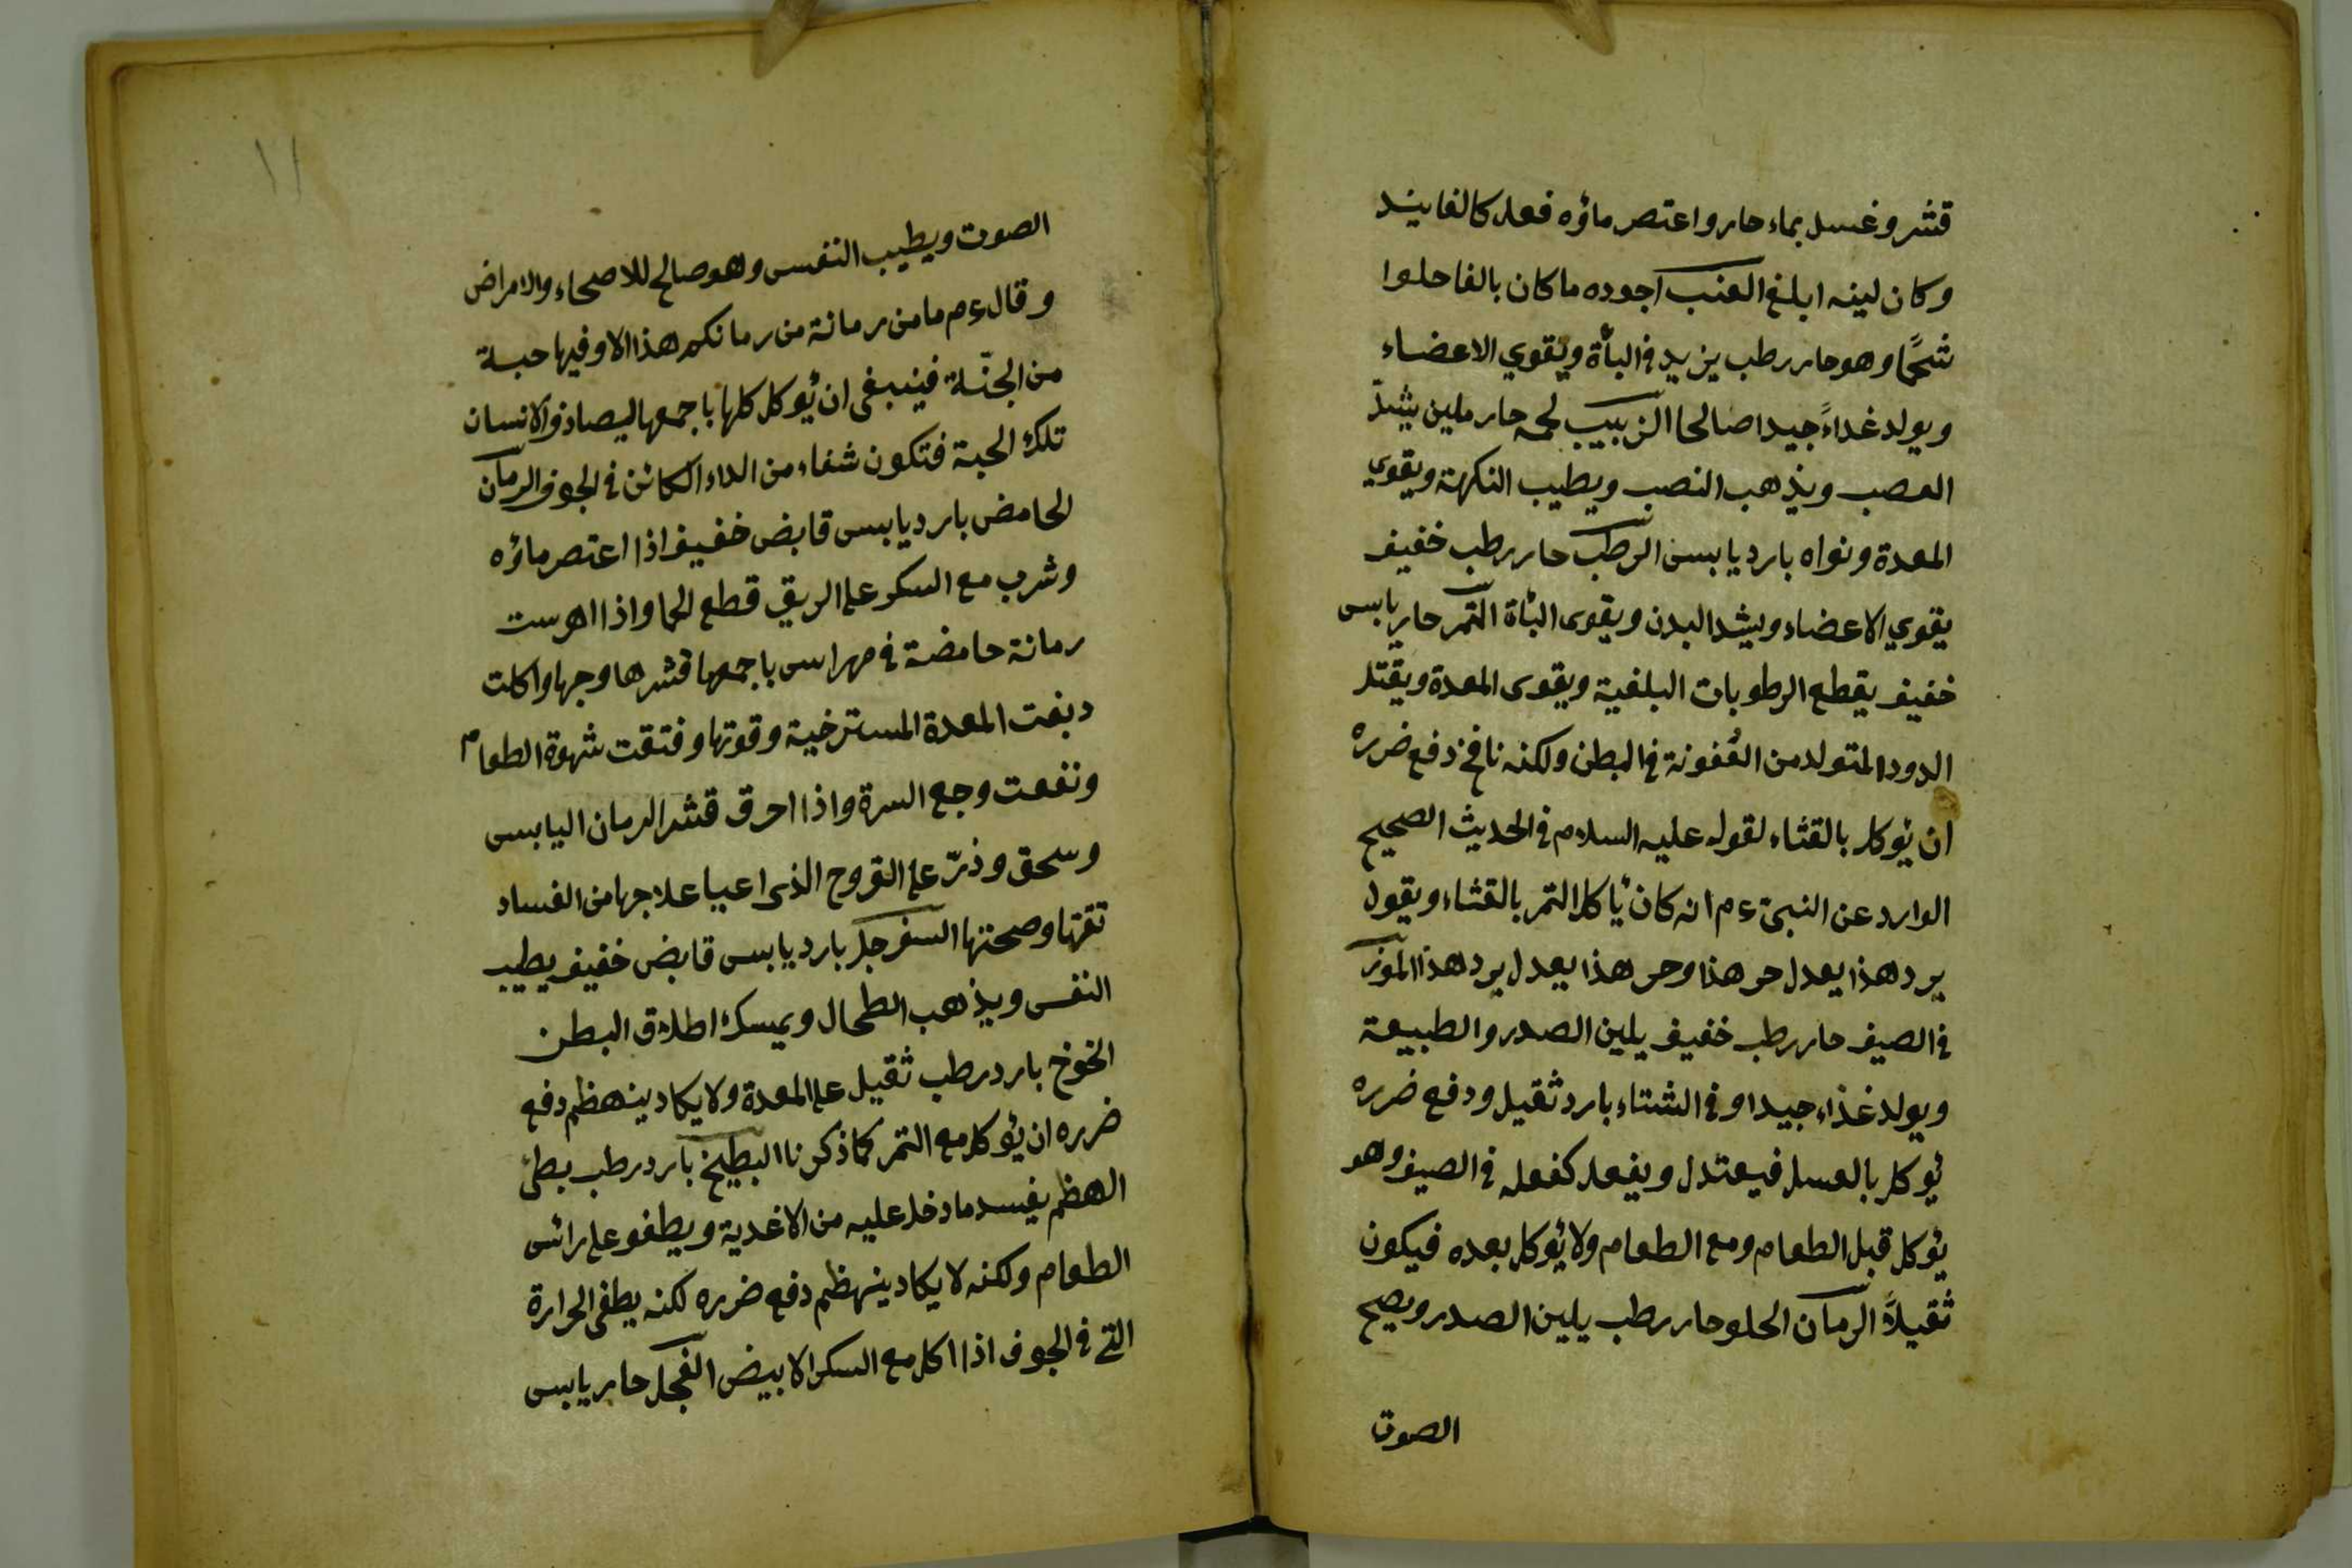 قشر وغسل بماء حار واعتصر ماؤه فعل كالفانيد
وكان لينه ابلغ العنب اجوده ما كان بالغا حلوا
شحًما وهو حار رطب يزيد في البأة ويقوي الاعضاء
ويولد غداءً جيدا صالحا الزبيب لحمه حار ملين يشدّ
العصب ويذهب النصب ويطيب النكهة ويقوي
المعدة ونواه بارد يابس الرطب حار رطب خفيف
يقوي الاعضاء ويشد البدن ويقوى البأة التمر حار يابس
خفيف يقطع الرطوبات البلغمية ويقوى المعدة ويقتل
الدود المتولد من العُفونة في البطن ولكنه نافخ دفع ضرره
ان يؤكل بالقثاء لقوله عليه السلام في الحديث الصحيح
الوارد عن النبيّ ءم انه كان يأكل التمر بالقثاء ويقول
برد هذا يعدل حر هذا وحر هذا يعدل برد هذا الموز
في الصيف حار رطب خفيف يلين الصدر والطبيعة
ويولد غذاء جيدا وفي الشتاء بارد ثقيل ودفع ضرره
يؤكل بالعسل فيعتدل ويفعل كفعله في الصيف وهو
يؤكل قبل الطعام ومع الطعام ولا يؤكل بعده فيكون
ثقيلاً الرمان الحلو حار رطب يلين الصدر ويصح
الصوت
١١
الصوت ويطيب النفس وهو صالح للاصحاء والامراض
وقال ءم ما من رمانة من رمانكم هذا الا وفيها حبة
من الجنّة فينبغى ان يُوكل كلها باجمعها ليصادف الانسان
تلك الحبة فتكون شفاء من الداء الكائن في الجوف الرمان
الحامض بارد يابس قابض خفيف اذا اعتصر ماؤه
وشرب مع السكر على الريق قطع الحما واذا اهرست
رمانة حامضة في مهراس باجمعها قشرها وجرها واكلت
دبغت المعدة المسترخية وقوتها وفتقت شهوة الطعام
ونفعت وجع السرة واذا احرق قشر الرمان اليابس
وسحق وذرّ على القروح الذى اعيا علاجها من الفساد
نقتها وصحتها السفرجل بارد يابس قابض خفيف يطيب
النفس ويذهب الطحال ويمسك اطلاق البطن
الخوخ بارد رطب ثقيل على المعدة ولا يكاد ينهظم دفع
ضرره ان يؤكل مع التمر كما ذكرنا البطيخ بارد رطب بطئ
الهظم يفسد ما دخل عليه من الاغدية ويطفو على رائس
الطعام ولكنه لا يكاد ينهظم دفع ضرره لكنه يطفى الحرارة
التي في الجوف اذا اكل مع السكر الابيض الفجل حار يابس